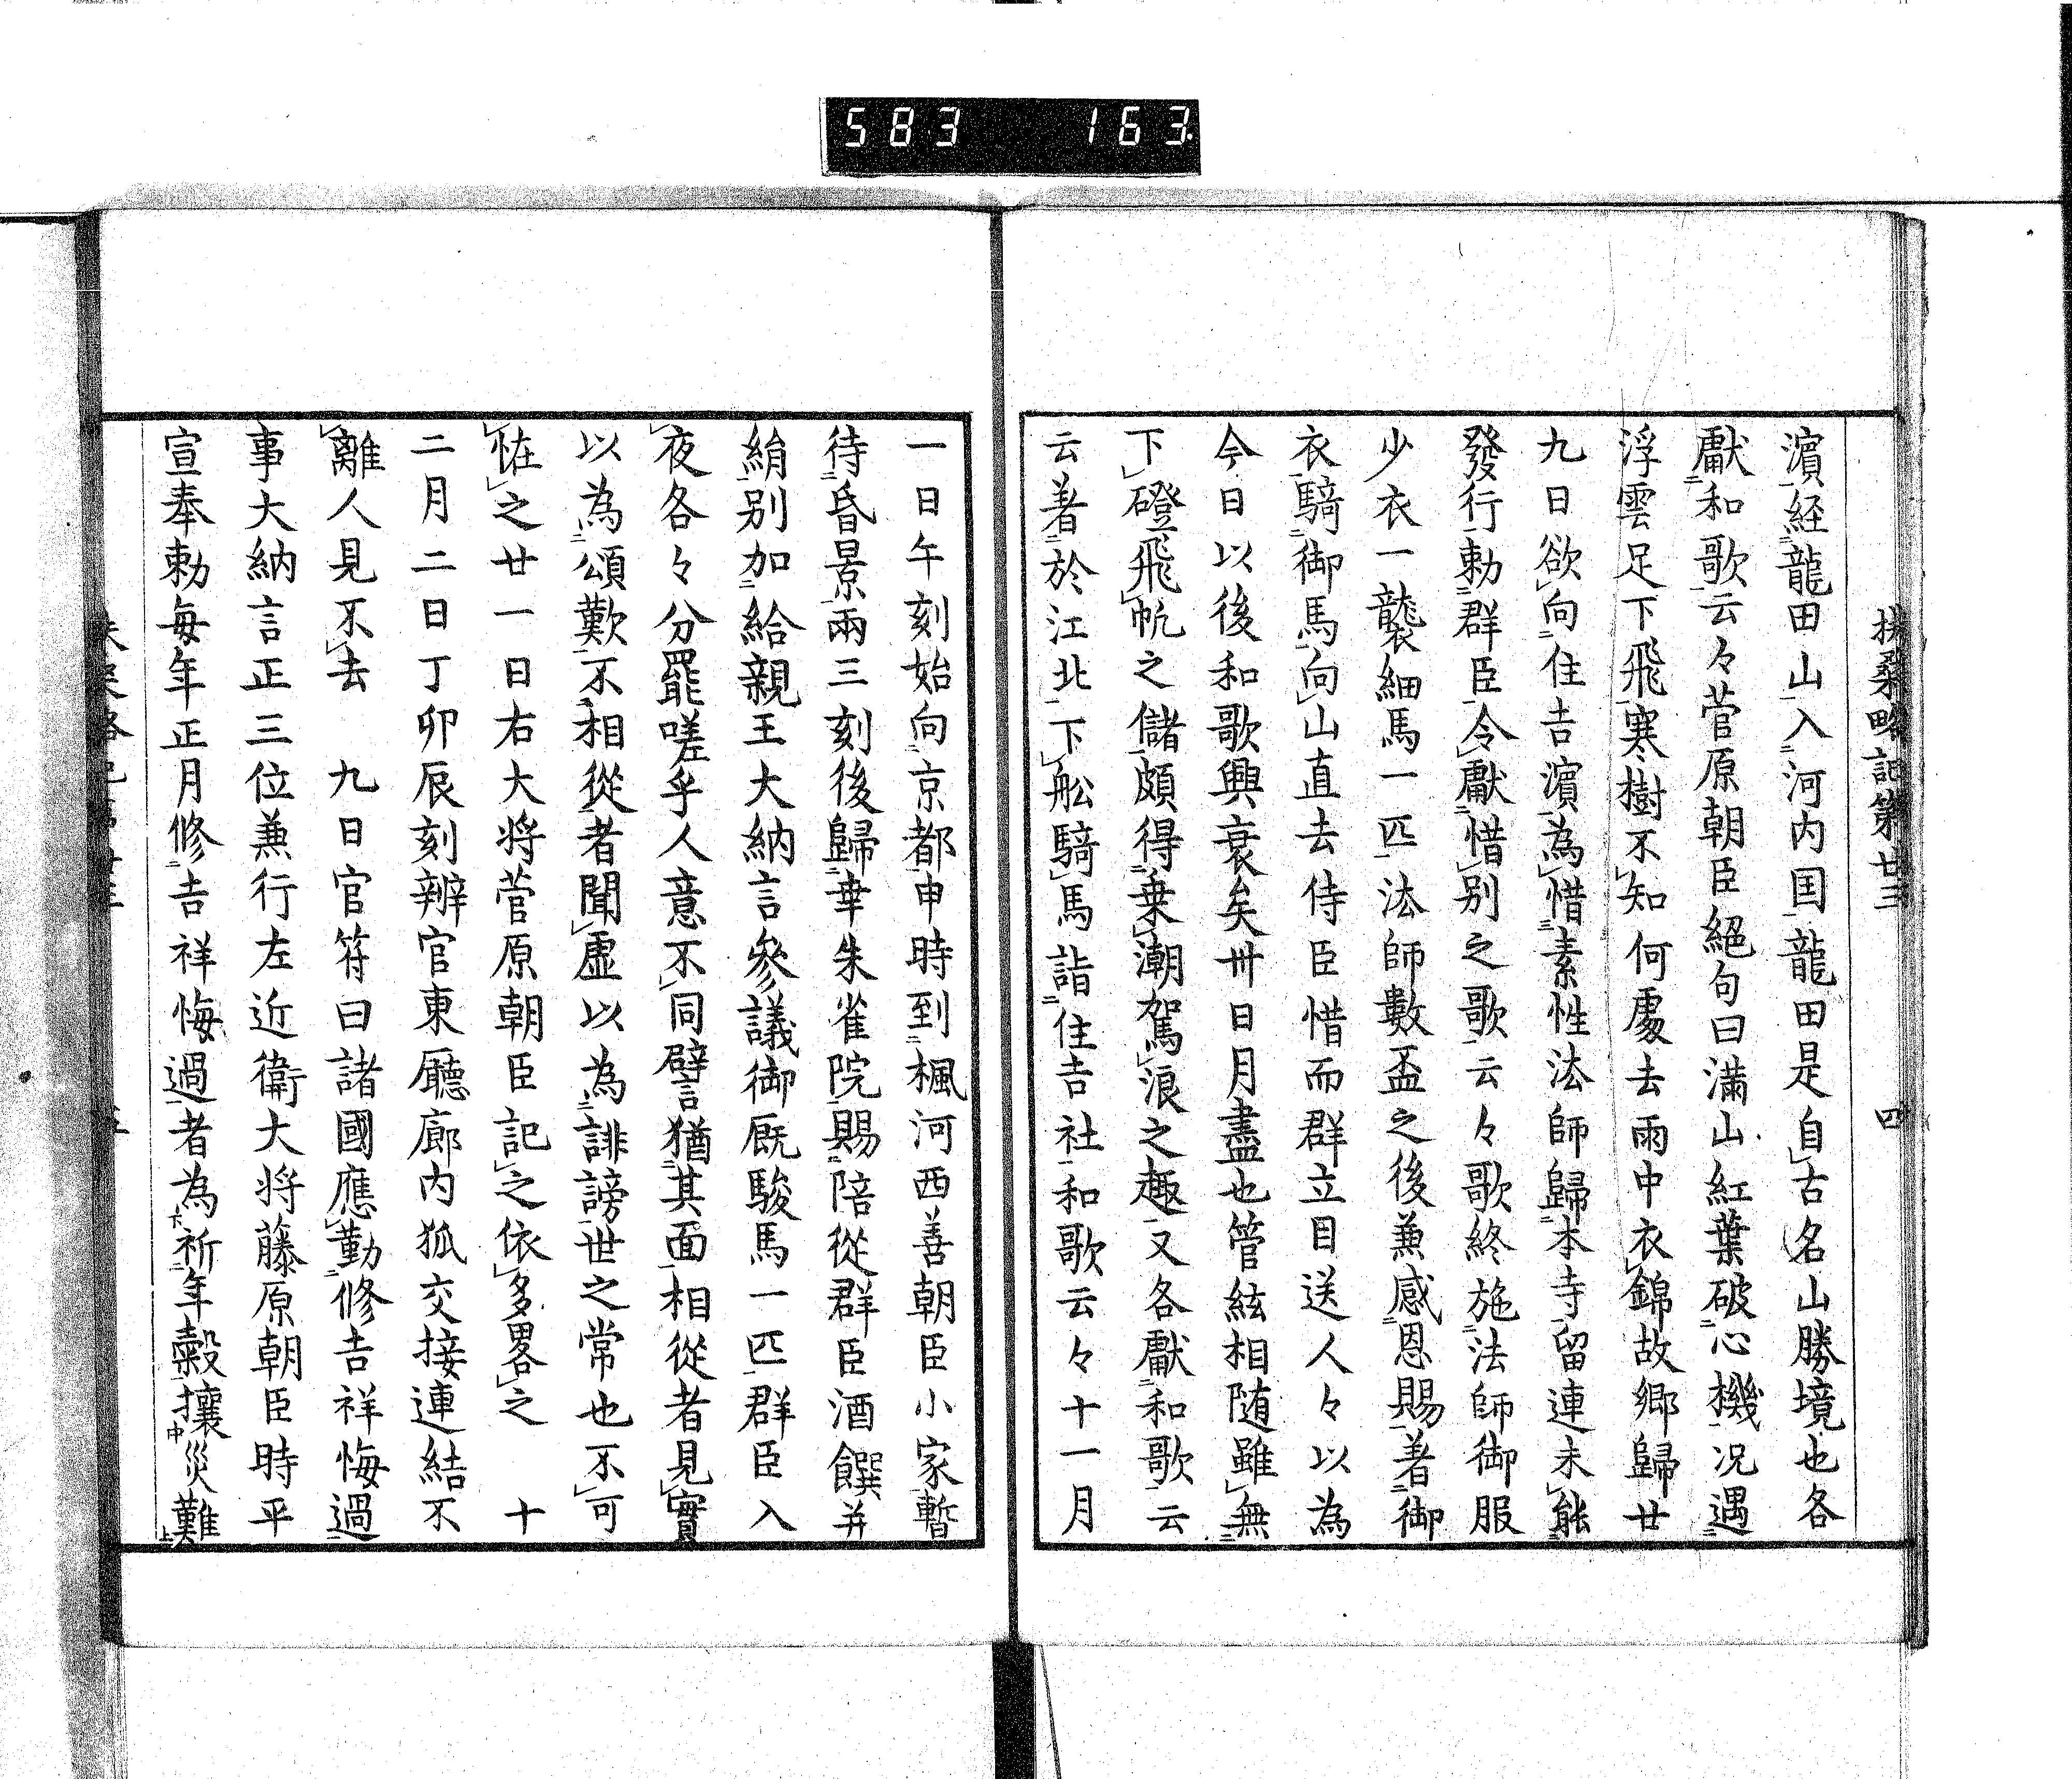 583 163
扶桒略記第廿三 四
濵経龍田山入河内国龍田是自古名山勝境也各
獻和歌云々菅原朝臣絕句曰滿山紅葉破心機况遇
浮雲足下飛寒樹不知何處去雨中衣錦故郷歸廿
九日欲向住吉濵為惜素性法師歸本寺留連未能
發行勅群臣令獻惜别之歌云々歌終施法師御服
少衣一襲細馬一匹法師數盃之後兼感恩賜著御
衣騎御馬向山直去侍臣惜而群立目送人々以為
今日以後和歌興衰矣卅日月盡也管絃相随雖無
下磴飛帆之儲頗得乗潮駕浪之趣又各獻和歌云
云著於江北下舩騎馬詣住吉社和歌云々十一月
一日午刻始向京都申時到楓河西善朝臣小家暫
待昏景兩三刻後歸幸朱雀院賜陪從群臣酒饌并
絹别加給親王大納言參議御厩駿馬一匹群臣入
夜各々分罷嗟乎人意不同譬猶其面相從者見實
以為頌歎不相從者聞虛以為誹謗世之常也不可
恠之廿一日右大将菅原朝臣記之依多畧之 十
二月二日丁卯辰刻辨官東廳廊内狐交接連結不
離人見不去 九日官符曰諸國應勤修吉祥悔過
事大納言正三位兼行左近衛大将藤原朝臣時平
宣奉勅每年正月修吉祥悔過者為祈年穀攘災難